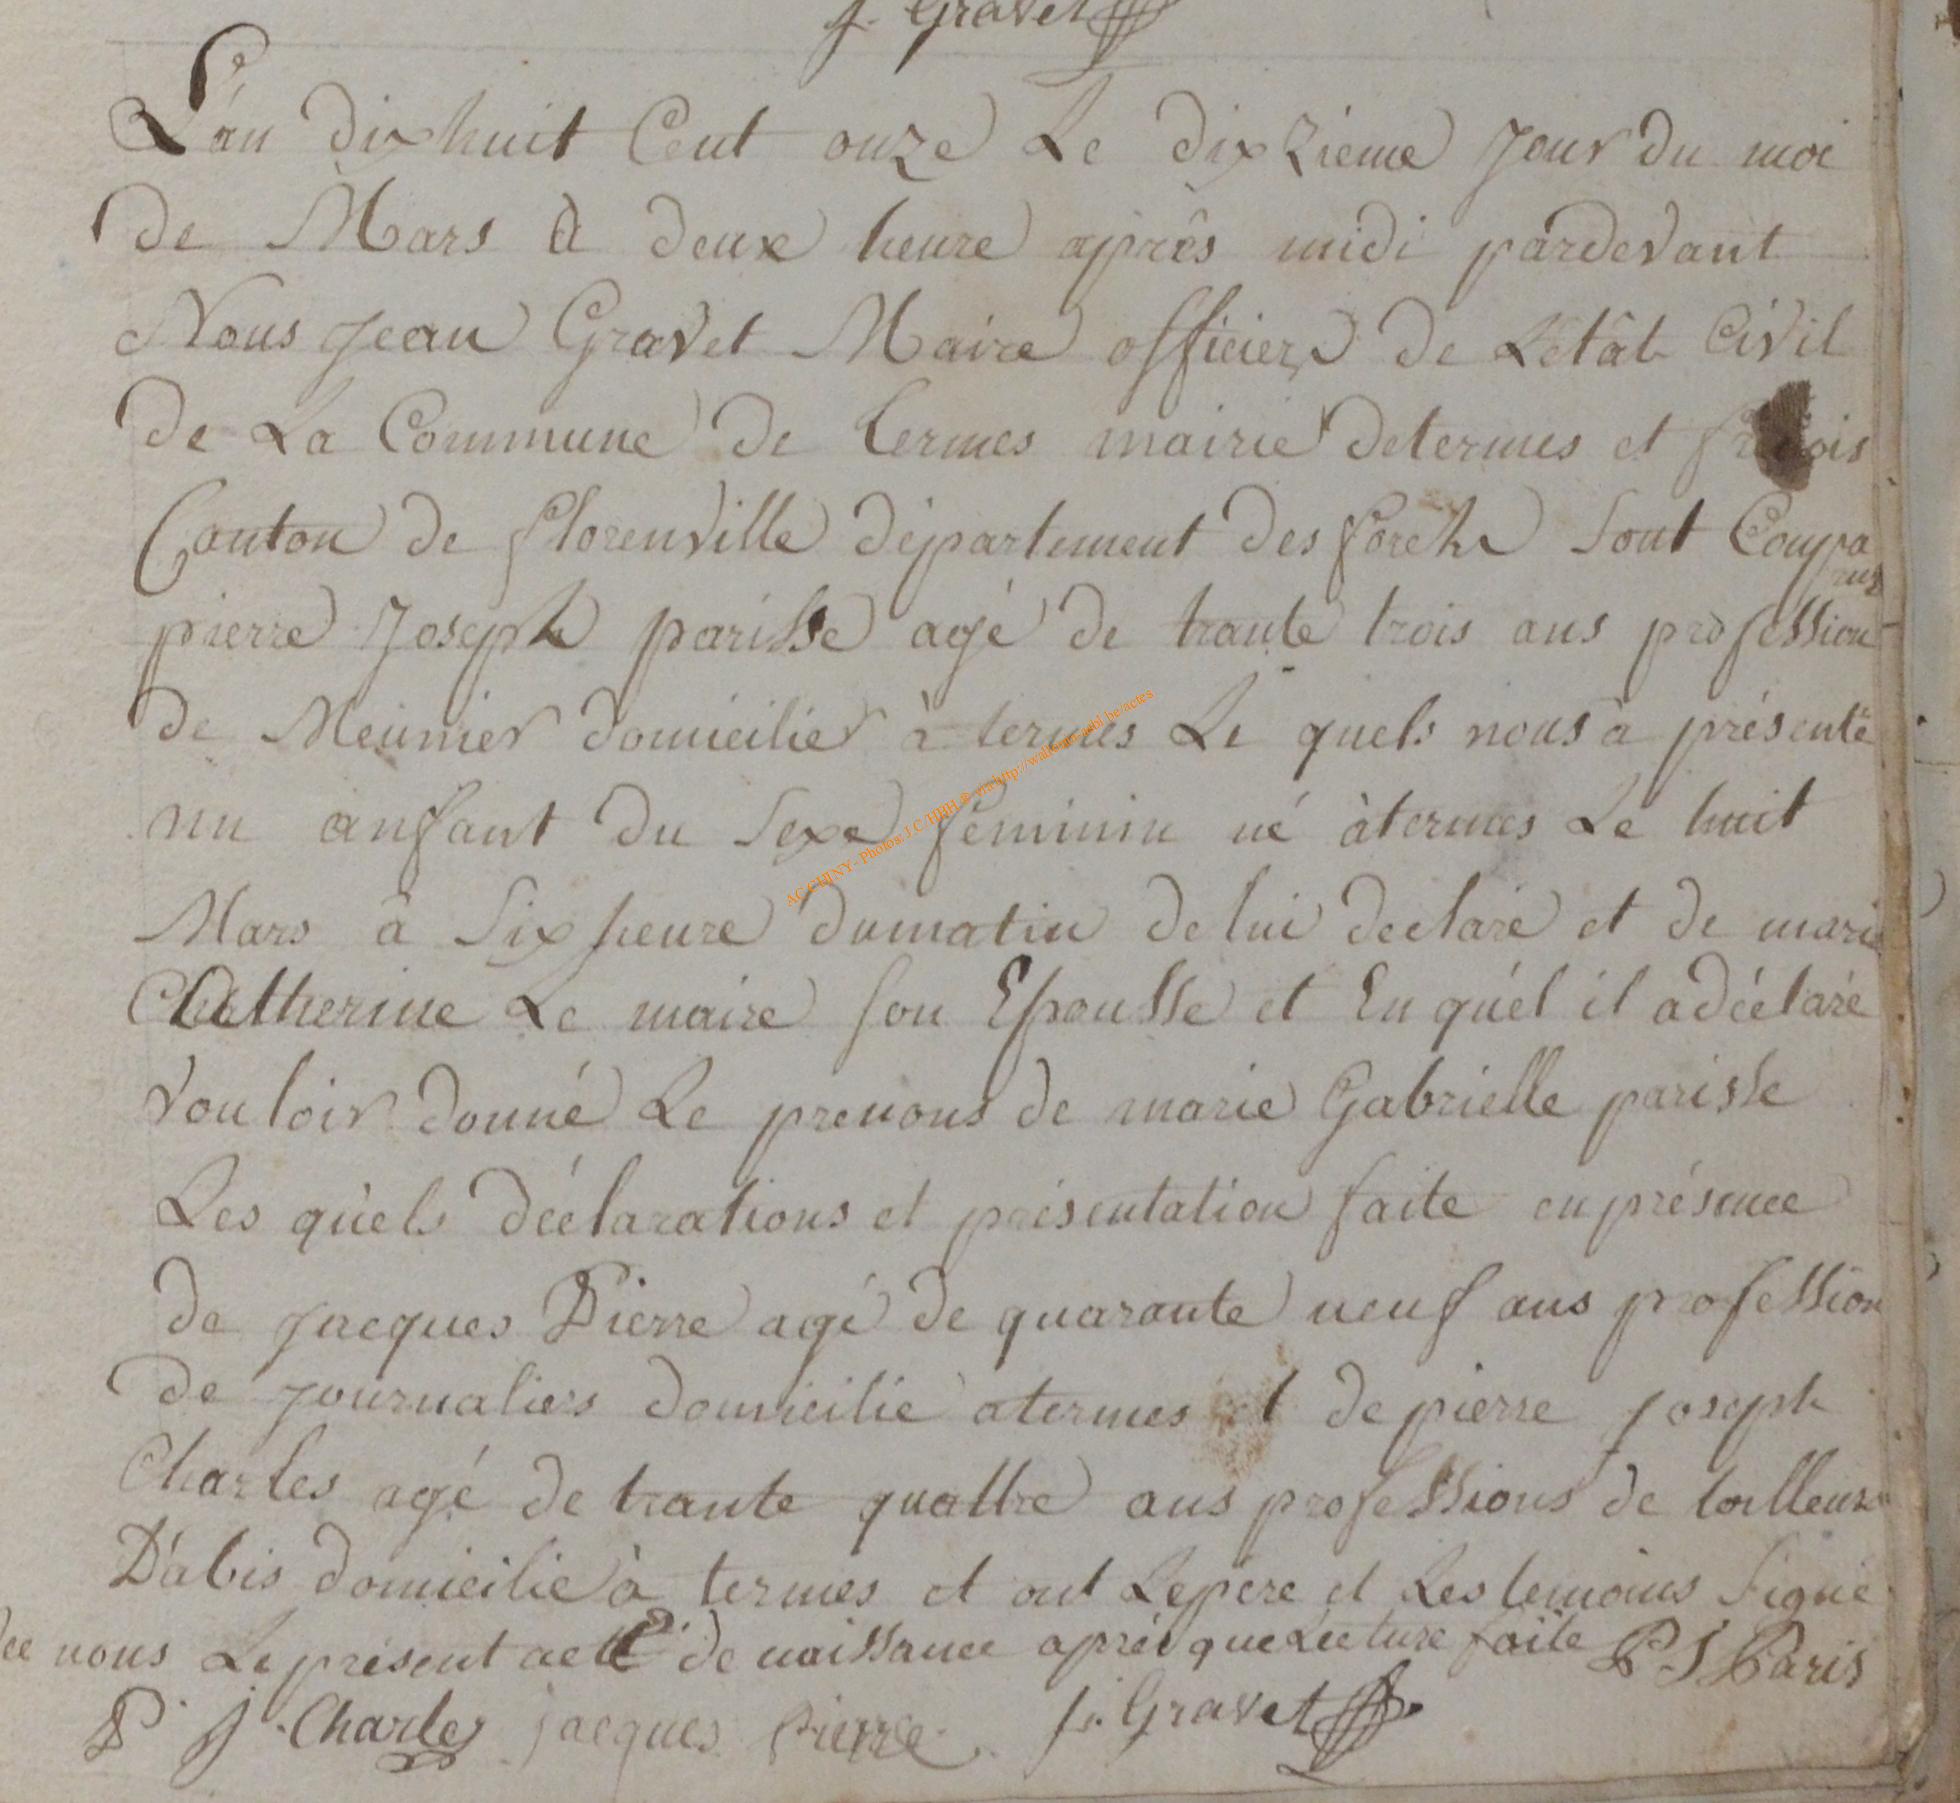 J. Gravet
L'an dix huit Cent onze Le dixzieme Jour du moi
de Mars à deux heure après midi pardevant
Nous Jean Gravet Maire officiers de Letât Civil
de La Commune de termes mairie determes et
Canton de florenville département des forets sont Compa
rus
pierre Joseph parisse agé de trante trois ans profession
de Meunier domicilier à termes Le quels nous à présenté
un anfant du Sexe féminin né àtermes Le huit
Mars à Six heure dumatin de lui declaré et de marie
Chatherine Le maire son Epousse et En quél il adéclaré
vouloir donné Le prenons de marie Gabrielle parisse
Les quèls déclarations et présentation faite enprésence
de jacques Pierre agé de quarante neuf ans profession
de journaliers domicilié atermes et de pierre joseph
Charles agé de trante quattre ans professions de tailleurs
D'abis domicilié à termes et ont Lepere et Les temoins Signé
nous Leprésent acte de naissance aprés que Lecture faite P J Paris
P. J. Charles jacques Pierre J. Gravet
AC CHINY - Photos: J.C/HBH © via http://wallonia-asbl.be/actes